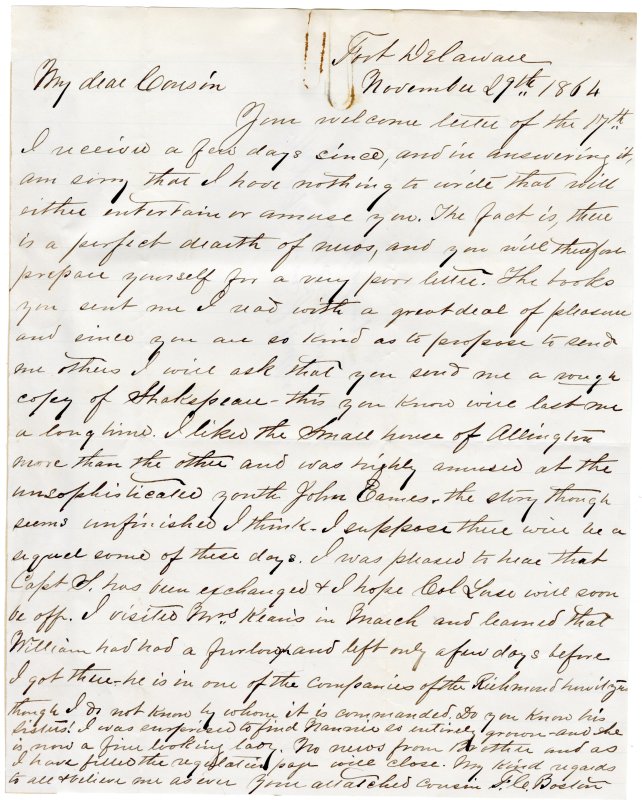 Fort Delaware
My dear Cousin
November 29th 1864
Your welcome letter of the 17th
I received a few days since, and in answering it,
am sorry that I have nothing to write that will
either entertain or amuse you. The fact is, there
is a perfect dearth of news, and you will therefore
prepare yourself for a very poor letter. The books
you sent me I read with a great deal of pleasure
and since you are so kind as to propose to send
me others I will ask that you send me a rough
copy of Shakspeare - this you know will last me
a long time. I liked the Small house of Allington
more than the other and was highly amused at the
unsophisticated youth John Eames - the story though
seems unfinished I think - I suppose there will be a
sequel some of these days. I was pleased to hear that
Capt S. has been exchanged & I hope Col Luse will soon
be off. I visited Mrs in March and learned that
William had had a furlough and left only a few days before
I got there - he is in one of the companies of the Richmond howitzers
though I do not know by whom it is commanded. Do you know his
sisters? I was surprised to find Nannie so entirely grown - and she
is now a fine looking lady. No news from Brother and as
I have filled the regulation page will close. My kind regards
to all & believe me as ever Your attached cousin Boston